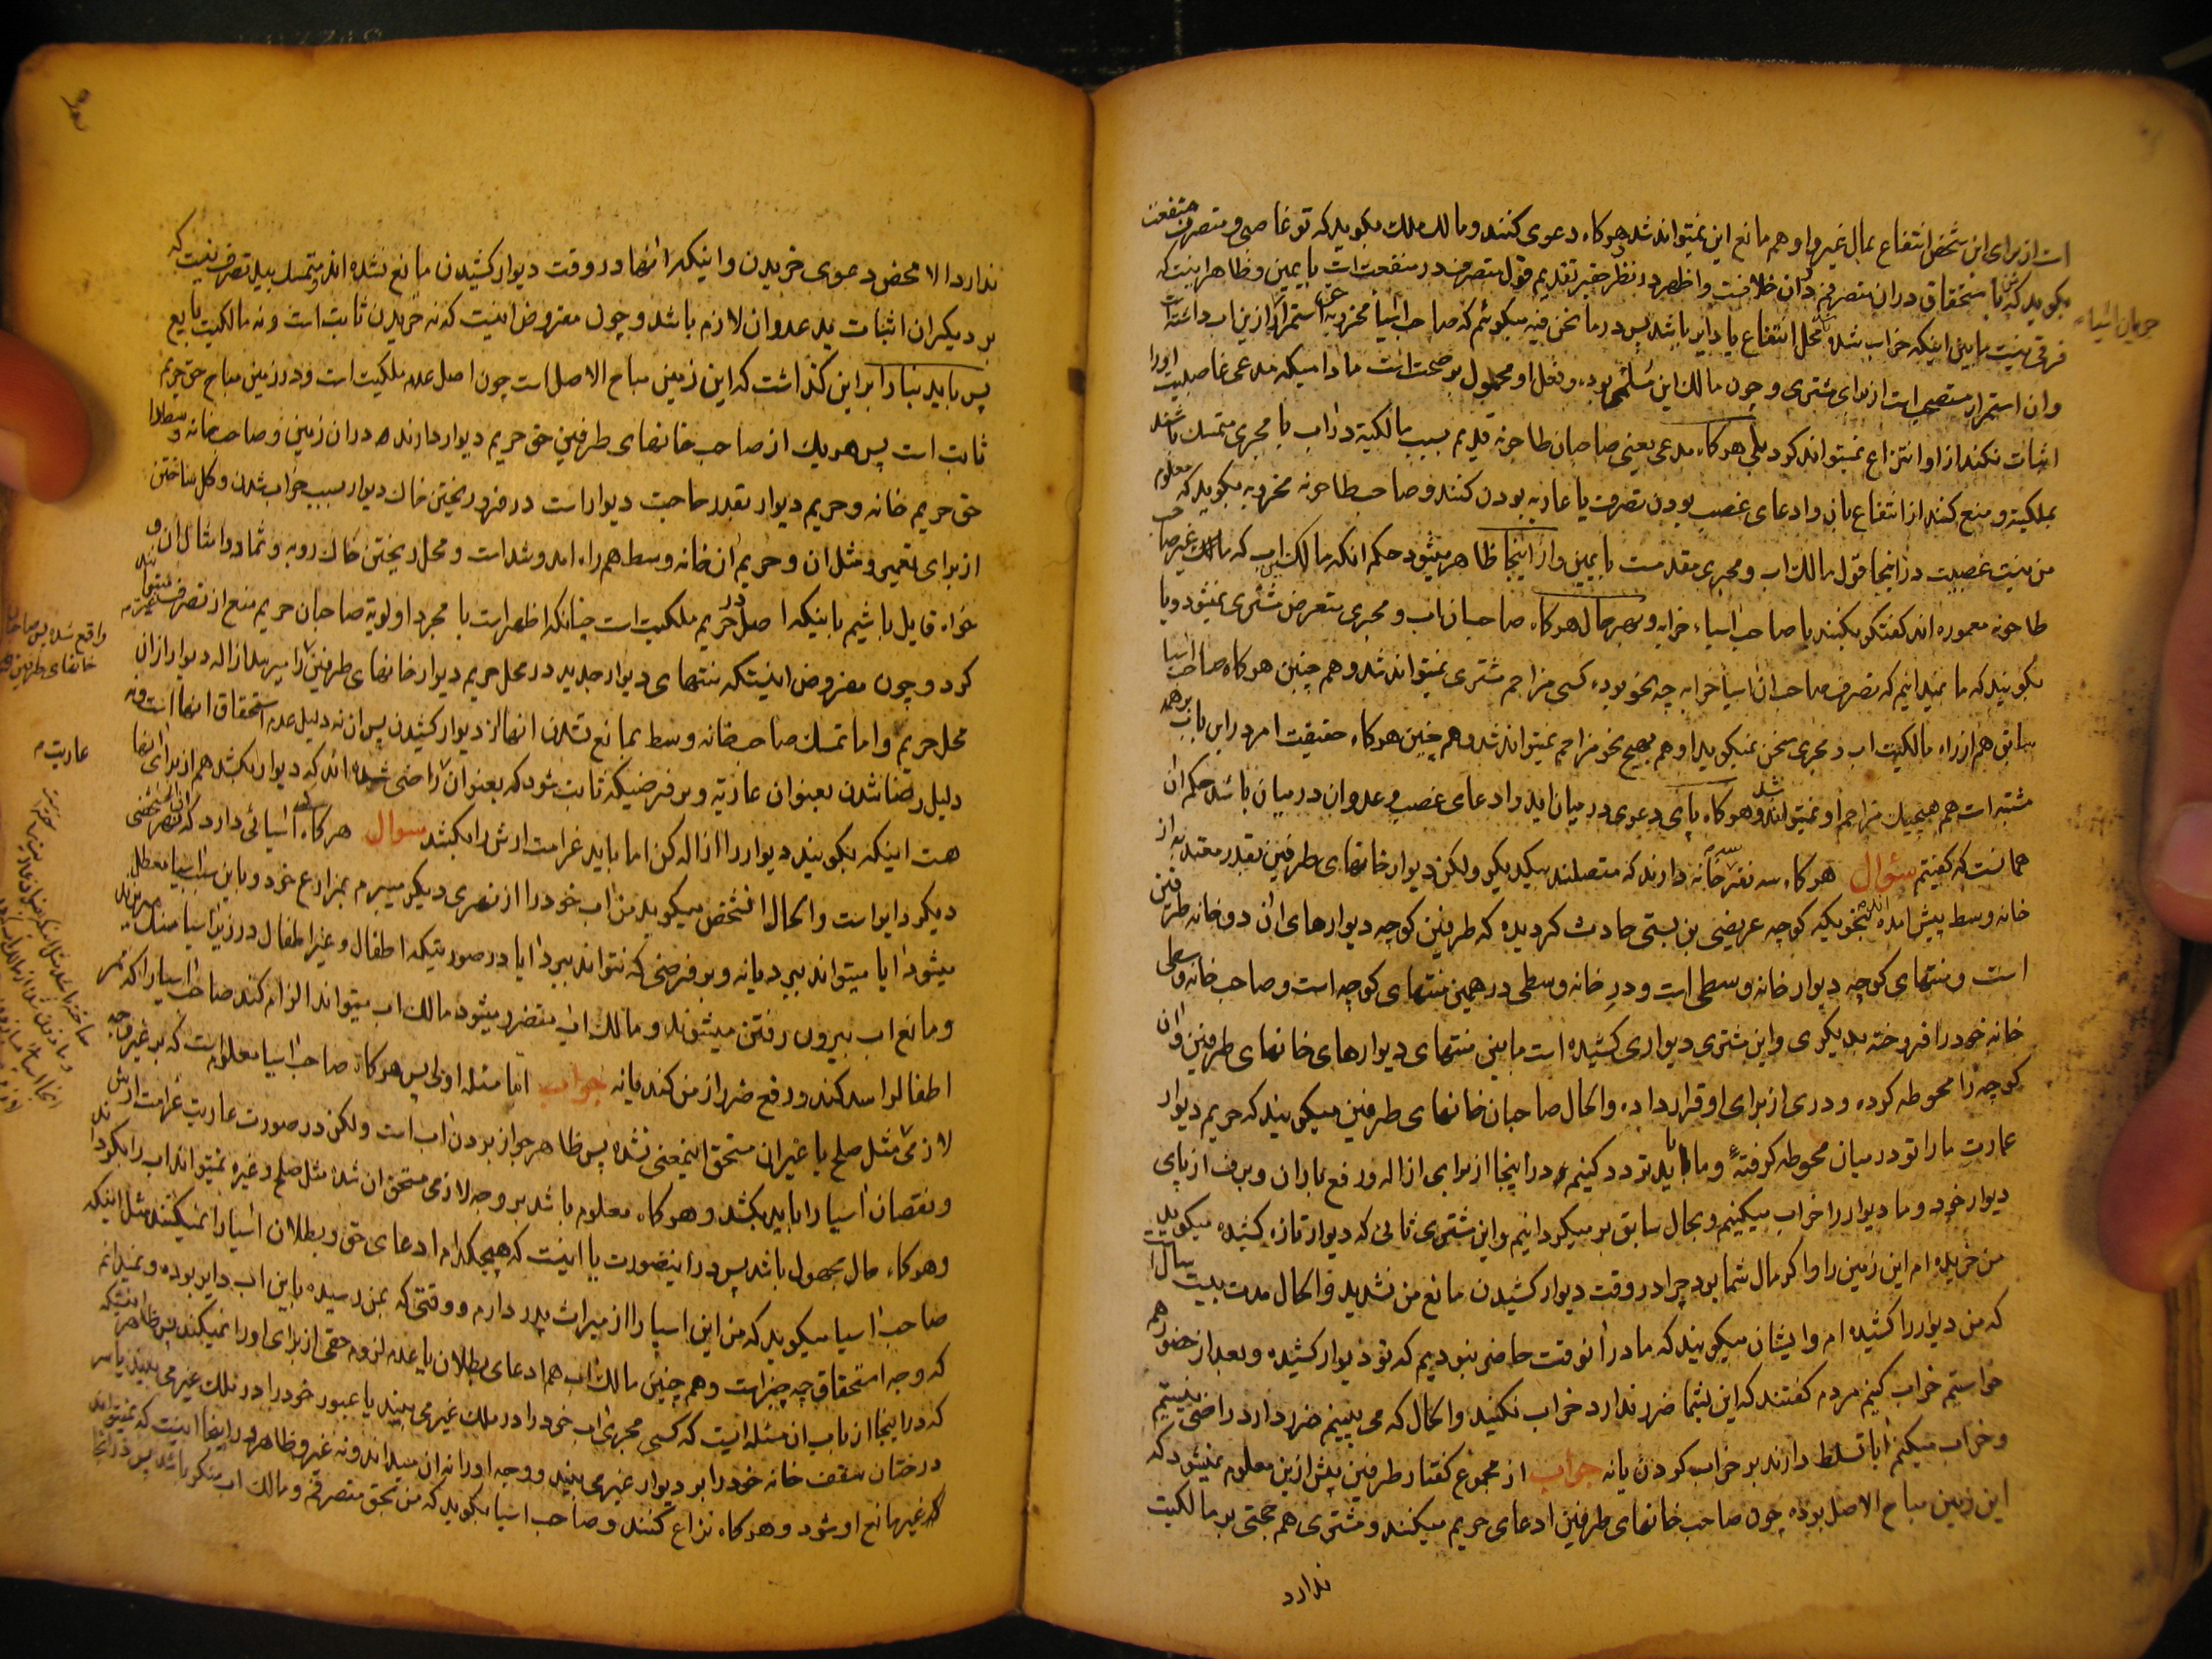 است از برای این شخص انتفاع بمال غیر و او هم مانع این نمیتواند شد و هرگاه دعوی کنند و مالک ملک بگوید که تو غاصبی و متصرف منفعت
بگوید که باستحقاق در آن متصرفم در آن خلافست و اظهر در نظر حقیر تقدیم قول متصرف در منفعت است با یمین و ظاهر اینست که
فرقی نیست ما بین اینکه خراب شده محل انتفاع یا دایر باشد پس در ما نحن فیه میگوئیم که صاحب آسیا مخروبه استمرار از این آب داشته
و آن استمرار مستصحب است از برای مشتری و چون مالک این بوده و فعل او محمول بر صحت است مادامیکه مدعی غاصبیت او را
اثبات نکند از او انتزاع نمیتواند کرد بلی هرگاه مدعی یعنی صاحبان طاحونه قدیم بسبب مالکیة در آب یا مجری متمسک باشند
بملکیة و منع کنند از انتفاع بآن و ادعای غصب بودن تصرف یا عاریه بودن کنند و صاحب طاحونه مخروبه بگوید که معلوم
من نیست غصبیت در اینجا قول مالک آب و مجری مقدمست با یمین و از اینجا ظاهر میشود حکم آنکه مالک آب که مالک غیر صاحب
طاحونه معموره اند گفتگو بکنند با صاحب آسیاء خرابه و بهر حال هرگاه صاحبان آب و مجری متعرض مشتری نمیشود و یا
بگویند که ما نمیدانیم که تصرف صاحب آن آسیا خرابه چه نحو بوده کسی مزاحم مشتری نمیتواند شد و هم چنین هرگاه صاحب آسیا
سابق هم از راه مالکیت آب و مجری سخن نمیگوید او هم بهیچ نحو مزاحم نمیتواند شد و هم چنین هرگاه حقیقت امر در این باب بر همه
مشتبه است هم هیچیک مزاحم او نمیتوانند شد و هرگاه پای دعوی در میان آید و ادعای غصب و عدوان در میان باشد حکم آن
همانست که گفتیم سؤال هرگاه سه نفر سه خانه دارند که متصلند بیکدیگر ولکن دیوار خانهای طرفین بقدر معتد به از
خانه وسط پیش آمده اند بنحویکه کوچه عریضی بن بستی حادث گردیده که طرفین کوچه دیوارهای آن دو خانه طرفین
است و منتهای کوچه دیوار خانه وسطی است و در خانه وسطی در همین منتهای کوچه است و صاحب خانه وسطی
خانه خود را فروخته بدیگری و این مشتری دیواری کشیده است ما بین منتهای دیوارهای خانهای طرفین و آن
کوچه را محوطه کرده و دری از برای او قرار داده و الحال صاحبان خانهای طرفین میگویند که حریم دیوار
عمارت ما را تو در میان محوطه گرفتهٔ و ما باید تردد کنیم در اینجا از برای ازاله و رفع باران و برف از پای
دیوار خود و ما دیوار را خراب میکنیم و بحال سابق بر میگردانیم و این مشتری ثانی که دیوار تازه کشیده میگوید
من خریده ام این زمین را و اگر مال شما بود چرا در وقت دیوار کشیدن مانع من نشدید و الحال مدت بیست سال است
که من دیوار را کشیده ام و ایشان میگویند که ما در آنوقت حاضر نبودیم که تو دیوار کشیده و بعد از حضور هم
خواستیم خراب کنیم مردم گفتند که این بشما ضرر ندارد خراب نکنید و الحال که می بینیم ضرر دارد راضی نیستیم
و خراب میکنیم آیا تسلط دارند بر خراب کردن یا نه جواب از مجموع گفتار طرفین پیش از این معلوم نمیشود که
این زمین مباح الاصل بوده چون صاحب خانهای طرفین ادعای حریم میکنند و مشتری هم حجتی بر مالکیت
ندارد
ندارد الا محض دعوی خریدن و اینکه آنها در وقت دیوار کشیدن مانع نشده اند و متمسک بید تصرف نیست که
بر دیگران اثبات ید عدوان لازم باشد و چون مفروض اینست که نه خریدن ثابت است و نه مالکیت بایع
پس باید بنا را بر این گذاشت که این زمین مباح الاصل است چون اصل عدم ملکیت است و در زمین مباح حق حریم
ثابت است پس هر یک از صاحب خانهای طرفین حق حریم دیوار دارند در آن زمین و صاحب خانه وسط را
حق حریم خانه و حریم دیوار بقدر حاجت دیوار است در فرو ریختن خاک دیوار بسبب خراب شدن و گل ساختن
از برای تعمیر و مثل آن و حریم آن خانه وسط هم راه آمد و شد است و محل ریختن خاک روبه و ثماد و امثال آن و
خواه قایل باشیم باینکه اصل در حریم ملکیت است چنانکه اظهر است یا مجرد اولویة صاحبان حریم منع از تصرف میتوانند
کرد و چون مفروض اینستکه منتهای دیوار جدید در محل حریم دیوار خانهای طرفین را میرسد ازاله دیوار از آن
محل حریم و اما تمسک صاحب خانه وسط بمانع نشدن آنها از دیوار کشیدن پس آن نه دلیل عدم استحقاق آنها است و نه
دلیل رضا شدن بعنوان عاریة و بر فرضیکه ثابت شود که بعنوان راضی شده اند که دیوار بکشد هم از برای آنها
هست اینکه بگویند دیوار را ازاله کن اما باید غرامت ارش را بکشد سوال هرگاه آسیائی دارد که از نهر شخصی
دیگر دایر است و الحال آنشخص میگوید من آب خود را از نهری دیگر میبرم بمزارع خود و باین سبب آسیا معطل
میشود آیا میتواند ببرد یا نه و بر فرضی که نتواند ببرد آیا در صورتیکه اطفال و غیر اطفال در زیر آسیا سنک میریزند
و مانع آب بیرون رفتن میشوند و مالک آب متضرر میشود مالک آب میتواند الزام کند صاحب آسیا را که ممر
اطفال را سد کند و رفع ضرر از من کند یا نه جواب اما مسئله اولی پس هرگاه صاحب آسیا معلوم است که بر غیر وجه
لازمی مثل صلح یا غیر آن مستحق اینمعنی نشده پس ظاهر جواز بردن آب است ولکن در صورت عاریت غرامت ارش
و نقصان آسیا را باید بکشد و هرگاه معلوم باشد بر وجه لازمی مستحق آن شده مثل صلح و غیره نمیتواند آب را بگرداند
و هرگاه حال مجهول باشد پس در اینصورت یا اینست که هیچکدام ادعای حق و بطلان آسیا را نمیکنند مثل اینکه
صاحب آسیا میگوید که من این آسیا را از میراث پدر دارم و وقتی که بمن رسیده باین آب دایر بوده و نمیدانم
که وجه استحقاق چه چیز است و هم چنین مالک آب هم ادعای بطلان یا عدم لزوم حقی از برای او را نمیکند پس ظاهر اینستکه
که در اینجا از باب آن مسئله ایست که کسی مجرای آب خود را در ملک غیر می بیند یا عبور خود را در ملک غیر می بیند یا سر
درختان سقف خانه خود را بر دیوار غیر می بیند و وجه او را نه آن میداند و نه غیر و ظاهر در اینها اینست که نمیتواند
که غیر مانع او شود و هرگاه نزاع کنند و صاحب آسیا بگوید که من بحق متصرفم و مالک آب منکر باشد پس در آنجا
واقع شده پس صاحبان
خانهای طرفین هم
عاریت م